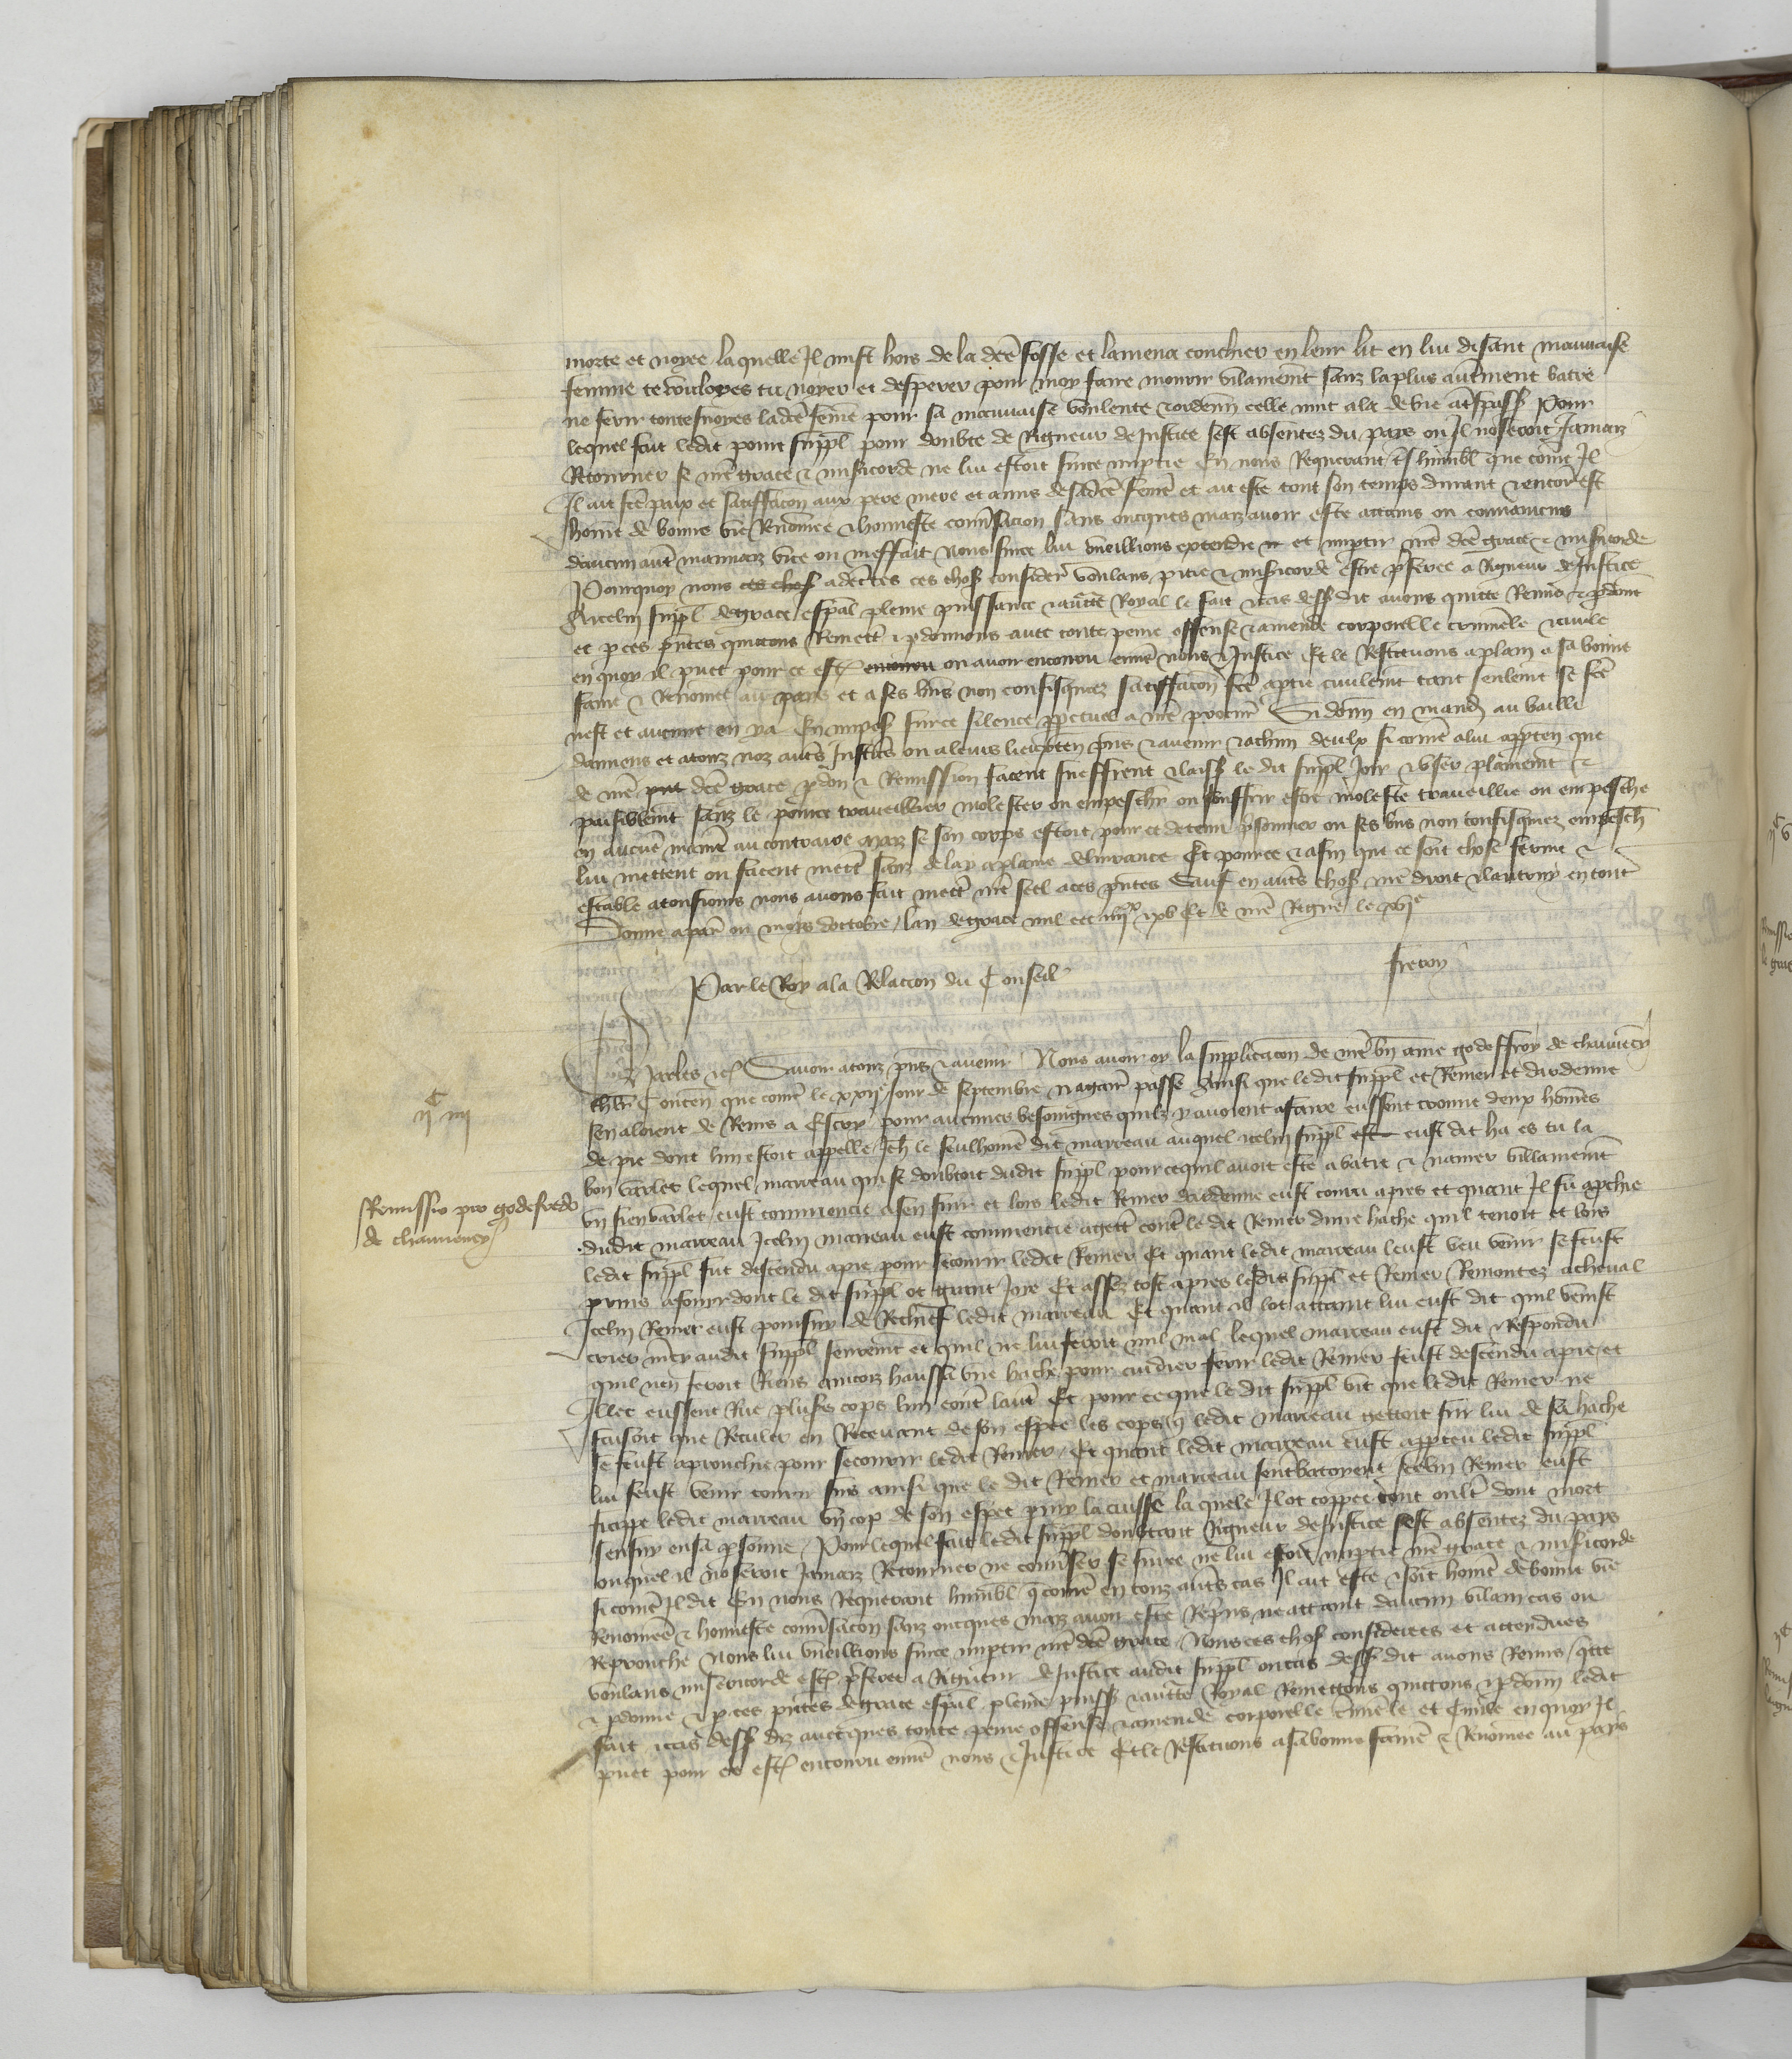 morte et noyee laquelle Il mist hors de la dce fosse et lamena couchier en leur lit en lui disant mauuaise
femme te vouloyes tu noyer et desperer pour moy faire mourir vilainemt sanz la plus autrment batre
ne ferir toutesuoyes ladce feme pour sa mauuaise voulente celle nuit ala de vie a trespass Pour
lequel fait ledit poure suppl pour doubte de Rigueur de Justice sest absentez du pays ou Il noseroit Jamaiz
Retourner se nre grace & misicorde ne lui estoit surce impartie En nous Requerant humbl que come Il
Il ait fce paix et satisfacon aux pere mere et amis de sadce feme et ait este tout son temps durant & encor est
home de bonne vie Renomee & honneste conusacion sans oncques maiz auoir este attains ou conuaincus
daucun aut mauuaiz vice ou meffait nous surce lui vueillions extendre et impartir nre dce grace & misicorde
Pourquoy nous ces chos adcertes ces chos consider voulans pitie & misicorde estre pferee a Rigueur de Justice
A icelui suppl de grace espal pleine puissance & auctte Royal le fait & cas dess dit auons quitte Remis & pdonne
et p ces pntes quittons Remett & pdonnons auec toute peine offense & amende corporelle criminele & ciuile
en quoy il puet pour ce est encouru ou auoir encouru enuers nous & Justice Et le Restituons a plain a sa bonne
fame & Renomee au pays et a ses biens non confisquez satisffacon fce a ptie ciuilemt tant seulemt se fce
nest et aucune en ya En impos surce silence ppetuel a nre procur Si donn en mand au bailli
damiens et a touz noz autres Justic ou a leurs lieuxten pns & auenir & a chun deulx si come a lui apptien que
de nre pnt dce grace pdon & Remission facent sueffrent & laiss le dit suppl Joir & vser plainemt &
paisiblemt sanz le poure traueillier molester ou empeschr ou souffrir estre moleste traueillie ou empesche
en aucune manie au contraire maiz se son corps estoit pour ce detenu prisonnier ou ses bns non confisquiez empesch
lui mettent ou facent mett sanz delay a plaine deliurance Et pource & afin que ce soit chose ferme &
estable a tousiours nous auons fait mett nre seel a ces pntes Sauf en autres chos nre droit & lautruy en tout
Donne a paris ou mois doctobre / lan de grace mil ccc iiiixx xv Et de nre Regne le xvje
Par le Roy a la Relacion du Conseil
freron
Charles &c Sauoir a touz pns & auenir Nous auoir oy la supplicacion de nre bn ame godeffroy de chauuecy
chlr Conten que come le xxije Jour de septembre nagair passe Ainsi que ledit suppl et Remer et dardenne
sen aloient de Reins a Escry pour aucunes besoingnes quilz y auoient a faire eussent trouue deux homes
de pie dont lun estoit appelle Jeh le seulhome dit marreau auquel icelui suppl est eust dit ha es tu la
bon varlet lequel marreau qui se doubtoit dudit suppl pour ce quil auoit este a batre & naurer villainemt
vn sien varlet / eust commencie a sen fuir et lors ledit Remer dardenne eust couru apres et quant Il fu apchie
dudit marreau Icelui marreau eust commencie a gett cont le dit Remer dune hache quil tenoit et lors
ledit suppl fut descendu a pie pour secourir ledit Remer Et quant ledit marreau leust veu venir se feust
prins a fouir dont le dit suppl ot grant Joye Et assez tost apres lesdis suppl et Remer Remontez a cheual
Icelui Remer eust poursuy de Rechief ledit marreau Et quant il lot attaint lui eust dit quil venist
crier mcy audit suppl seuremt et quil ne lui feroit nul mal lequel marreau eust dit & Respondu
quil nen feroit Riens aincoiz haussa vne hache pour cuidier ferir ledit Remer feust descendu a pie et
Illec eussent Rue plus cops lun cont laut Et pour ce que le dit suppl vit que le dit Remer ne
faisoit que Reculer en Receuant de son espee les cops q ledit marreau gettoit sur lui de sa hache
se feust aprouchie pour secourir ledit Remer / Et quant ledit marreau eust apperceu ledit suppl
lui feust venir courir sus ainsi que le dit Remer et marreau sentrebatoyent Icelui Remer eust
frappe ledit marreau vn cop de son espee pmy la cuisse laquele Il ot coppee tout oult dont mort
sensuy en sa psonne / Pour lequel fait ledit suppl doubtant Rigueur de Justice sest absentez du pays
ouquel il noseroit Jamaiz Retourner ne conuser se surce ne lui estoit impartie nre grace & misicorde
si come Il dit En nous Requerant humbl q come en touz autres cas Il ait este & soit home de bonne vie
Renomee & honneste conusacon sanz oncques maiz auoir este Repris ne attaint daucun vilain cas ou
reprouche Nous lui vueillions surce impartir nre dce grace Nous ces chos considerees et attendues
voulans misericorde est pferee a Rigueur de Justice audit suppl ou cas dess dit auons Remis / qtte
& pdonne & p ces pntes de grace espal pleine puiss & auctte Royal Remettons quittons & pdonn ledit
fait & cas dess diz auecques toute peine offense & amende corporelle crimele et Ciuile en quoy Il
puet pour ce est encouru enuers nous & Justice Et le Restituons a sa bonne fame & Renomee au pays
ijC iiij
Remissio pro godefredo
de chauuency